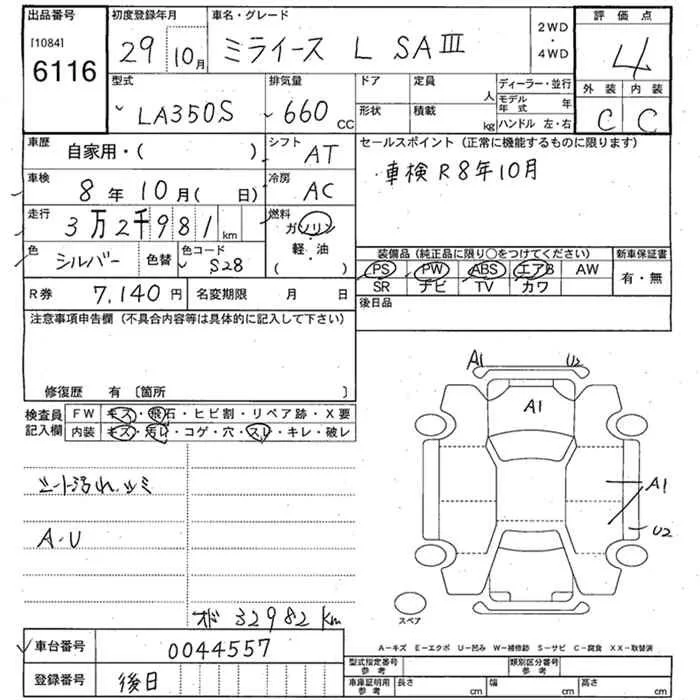 出品番号 初度登録年月 車名・グレード 2WD・4WD 評価点
[1084] 6116 29 10月 ミライース L SAⅢ 4
型式 排気量 ドア 定員 人 ディーラー・並行 外装 内装
LA350S 660 CC 形状 積載 kg モデル年式 年 C C
ハンドル 左・右
車歴 自家用・( ) シフト AT セールスポイント（正常に機能するものに限ります）
車検 8年10月( 日) 冷房 AC 車検R8年10月
走行 3万2千981 km 燃料 ガソリン・軽・油 ( )
色 シルバー 色替 色コード S28 装備品（純正品に限り○をつけてください） 新車保証書
PS PW ABS エアB AW 有・無
SR ナビ TV カワ
R券 7,140円 名変期限 月 日 後日品
注意事項申告欄（不具合内容等は具体的に記入して下さい）
修復歴 有 〔箇所 〕
検査員記入欄 FW キズ・飛石・ヒビ割・リペア跡・X要
内装 キズ・汚レ・コゲ・穴・スレ・キレ・破レ
A1 U2
A1
A1
U2
シート汚れ.シミ
A・U
スペア
オド 32982 km
車台番号 0044557
A－キズ E－エクボ U－凹み W－補修跡 S－サビ C－腐食 XX－取替済
登録番号 後日
型式指定番号 参考 類別区分番号 参考
車庫証明用 参考 長さ cm 幅 cm 高さ cm